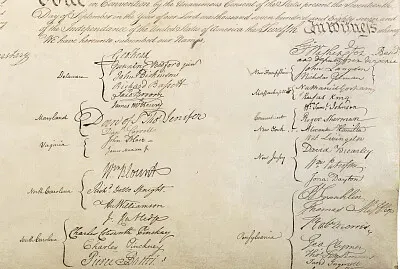 Done in Convention by the Unanimous Consent of the States present the Seventeenth
Day of September in the Year of our Lord one thousand seven hundred and Eighty seven and
of the Independence of the United States of America the Twelfth In Witness
We have hereunto subscribed our Names,
Delaware
Geo: Read
Gunning Bedford jun
John Dickinson
Richard Bassett
Jaco: Broom
James McHenry
Maryland
Dan of St Thos Jenifer
Danl Carroll
John Blair
North Carolina
Wm Blount
Richd Dobbs Spaight
Hu Williamson
J. Rutledge
South Carolina
Charles Cotesworth Pinckney
Charles Pinckney
Pierce Butler
Go Washington
and deputy from Virginia
New Hampshire
John Langdon
Nicholas Gilman
Massachusetts
Nathaniel Gorham
Rufus King
Connecticut
Wm Saml Johnson
Roger Sherman
New York
Alexander Hamilton
New Jersey
Wil: Livingston
David Brearley
Wm Paterson
Jona: Dayton
Pensylvania
B Franklin
Thomas Mifflin
Robt Morris
Geo. Clymer
Thos FitzSimons
Jared Ingersoll